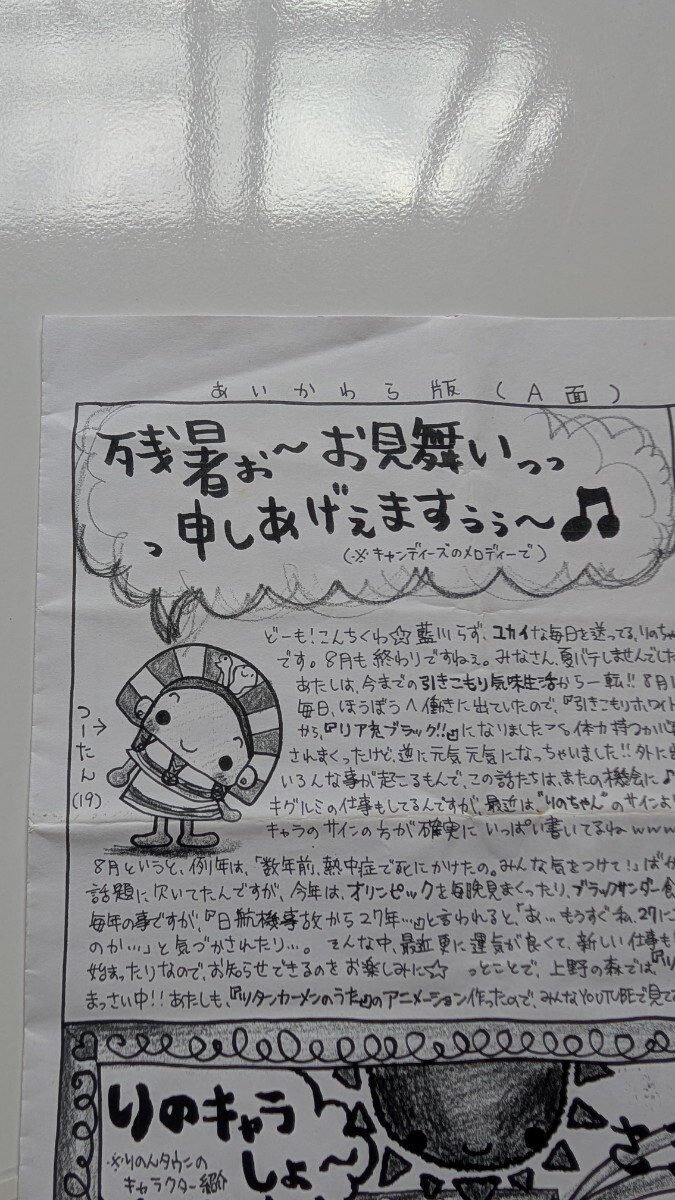 あいかわら版(A面)
残暑ぉ〜お見舞いっっ
っ申しあげぇますぅぅ〜♫
(※キャンディーズのメロディーで)
どーも!こんちくわ☆藍川らず、ユカイな毎日を送ってる、りのちゃ
です。8月も終わりですねぇ。みなさん、夏バテしませんでした
あたしは、今までの引きこもり気味生活から一転!!8月
毎日、ほうぼうへ働きに出ていたので、『引きこもりホワイト
から、『リア充ブラック!!』になりました 体力持つか心
されまくったけど、逆に元気元気になっちゃいました!!外に出
いろんな事が起こるもんで、この話たちは、またの機会に♪
キグルミの仕事もしてるんですが、最近は"りのちゃん"のサインよ
キャラのサインの方が確実にいっぱい書いてるねwww
つーたん→
(19)
8月というと、例年は、「数年前、熱中症で死にかけたの。みんな気をつけて!」ばか
話題に欠いてたんですが、今年は、オリンピックを毎晩見まくったり、ブラックサンダー食
毎年の事ですが、『日航機事故から27年…』と言われると、「あ…もうすぐ私、27に
のか…」と気づかされたり…。そんな中、最近更に運気が良くて、新しい仕事も
始まったりなので、お知らせできるのをお楽しみに☆ っとことで、上野の森では『ツ
まっさい中!!あたしも、『ツタンカーメンのうた』のアニメーション作ったので、みんなYOUTUBEで見て
りのキャラ
しょ〜
※りのんタウンの
キャラクター紹介
さ